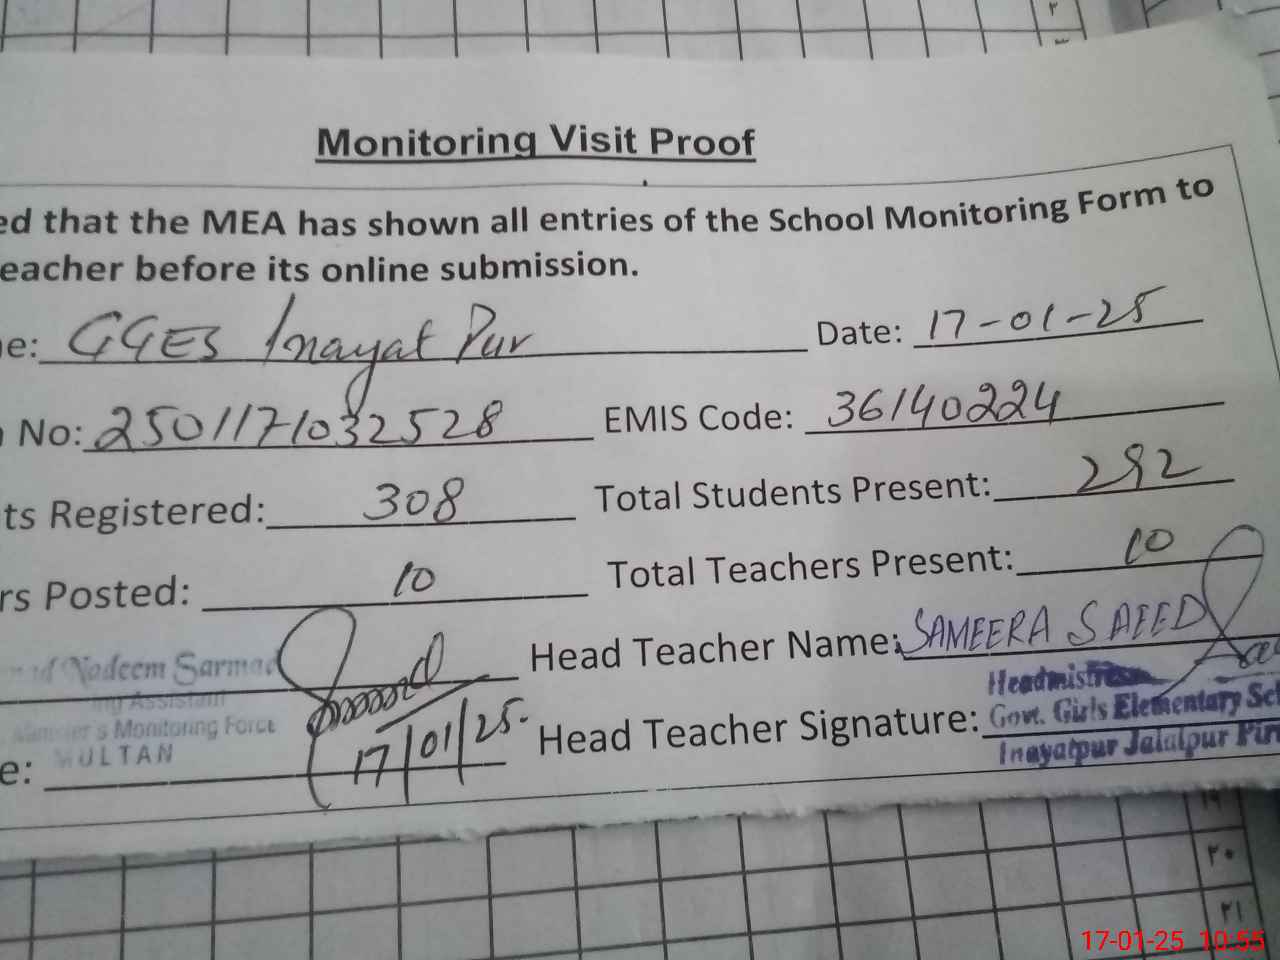 ۲
۳
Monitoring Visit Proof
ed that the MEA has shown all entries of the School Monitoring Form to
eacher before its online submission.
e: GGES Inayat Pur Date: 17-01-25
No: 2501171032528 EMIS Code: 36140224
ts Registered: 308 Total Students Present: 292
rs Posted: 10 Total Teachers Present: 10
Nadeem Sarmad Head Teacher Name: SAMEERA SAEED
ing Assistant Headmistress
's Monitoring Force Head Teacher Signature: Govt. Girls Elementary Sc
MULTAN Inayatpur Jalalpur Pir
e: 17/01/25.
۱۹
۲۰
۲۱
17-01-25 10:55